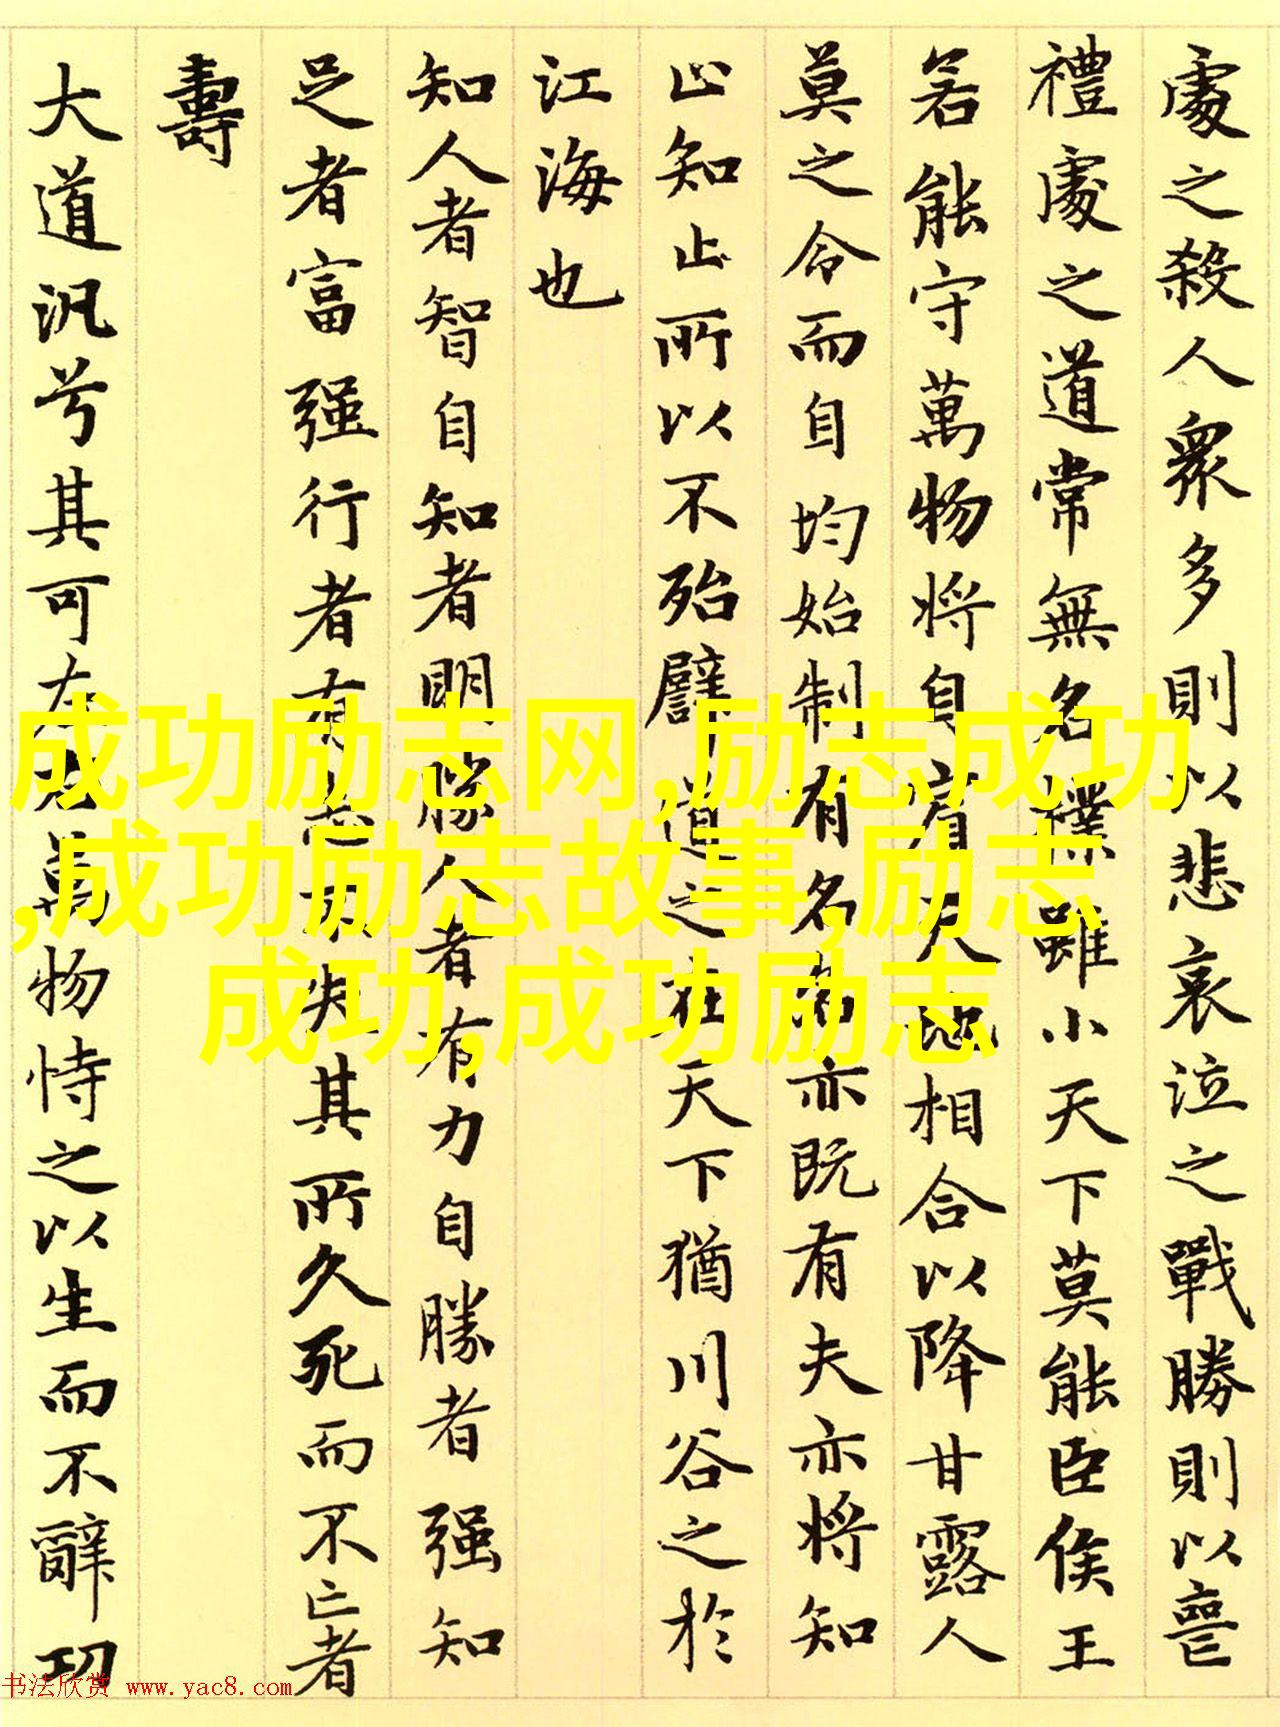 處之殺人衆多則以悲哀泣之戰勝則以喪
禮處之道常無名樸雖小天下莫能臣侯王
若能守萬物將自賓天地相合以降甘露人
莫之令而自均始制有名名亦既有夫亦將知
止知止所以不殆譬道之在天下猶川谷之於
江海也
知人者智自知者明勝人者有力自勝者强知
足者富强行者有志不失其所久死而不亡者
壽
大道汎兮其可左右萬物恃之以生而不辭功
成功励志网,励志成功
,成功励志故事,励志
成功,成功励志
书法欣赏 www.yac8.com